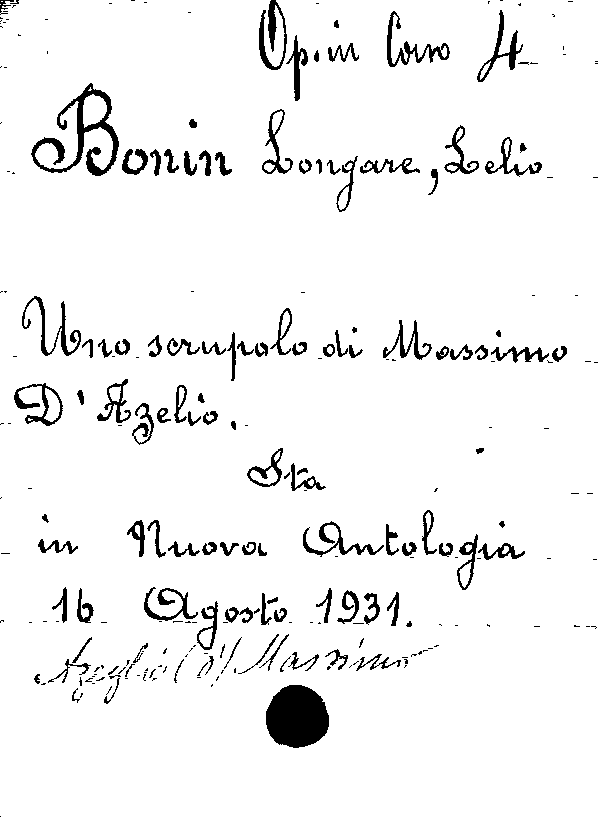 Op. in Corso 4
Bonin Longare, Lelio
Uno scrupolo di Massimo
D'Azelio.
Sta
in Nuova Antologia
16 Agosto 1931.
Azeglio (d') Massimo